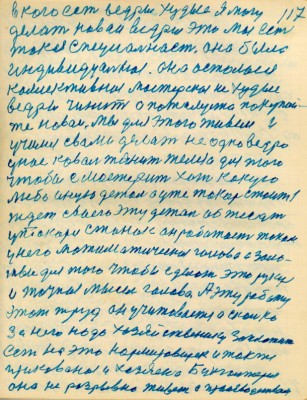 у кого есть ведры худые я могу 117
делать новые ведры это моя есть
такая специальность она была
индивидуальная. она осталася
коллективная мастерская не худые
ведры чинит а пожалуста покупай
те новые, мы для этого живем и
учимся сами делать не одно ведро
у нас кован тонит тело для того
чтобы смастерить хоть какую
либо иную деталь а уже токар стоит
ждет своего эту деталь обтесат
у токаря станок он работает током
у него математическая голова с зало
для того чтобы сделат это руки
и точная мысль голова. А эту работу
этот труд он учитывает а сколко
за него надо хозяйственнику заплатит
Есть на это нормировщик и также
прикована к хозяйству Бухгалтерия
она не разрывно живет с производством